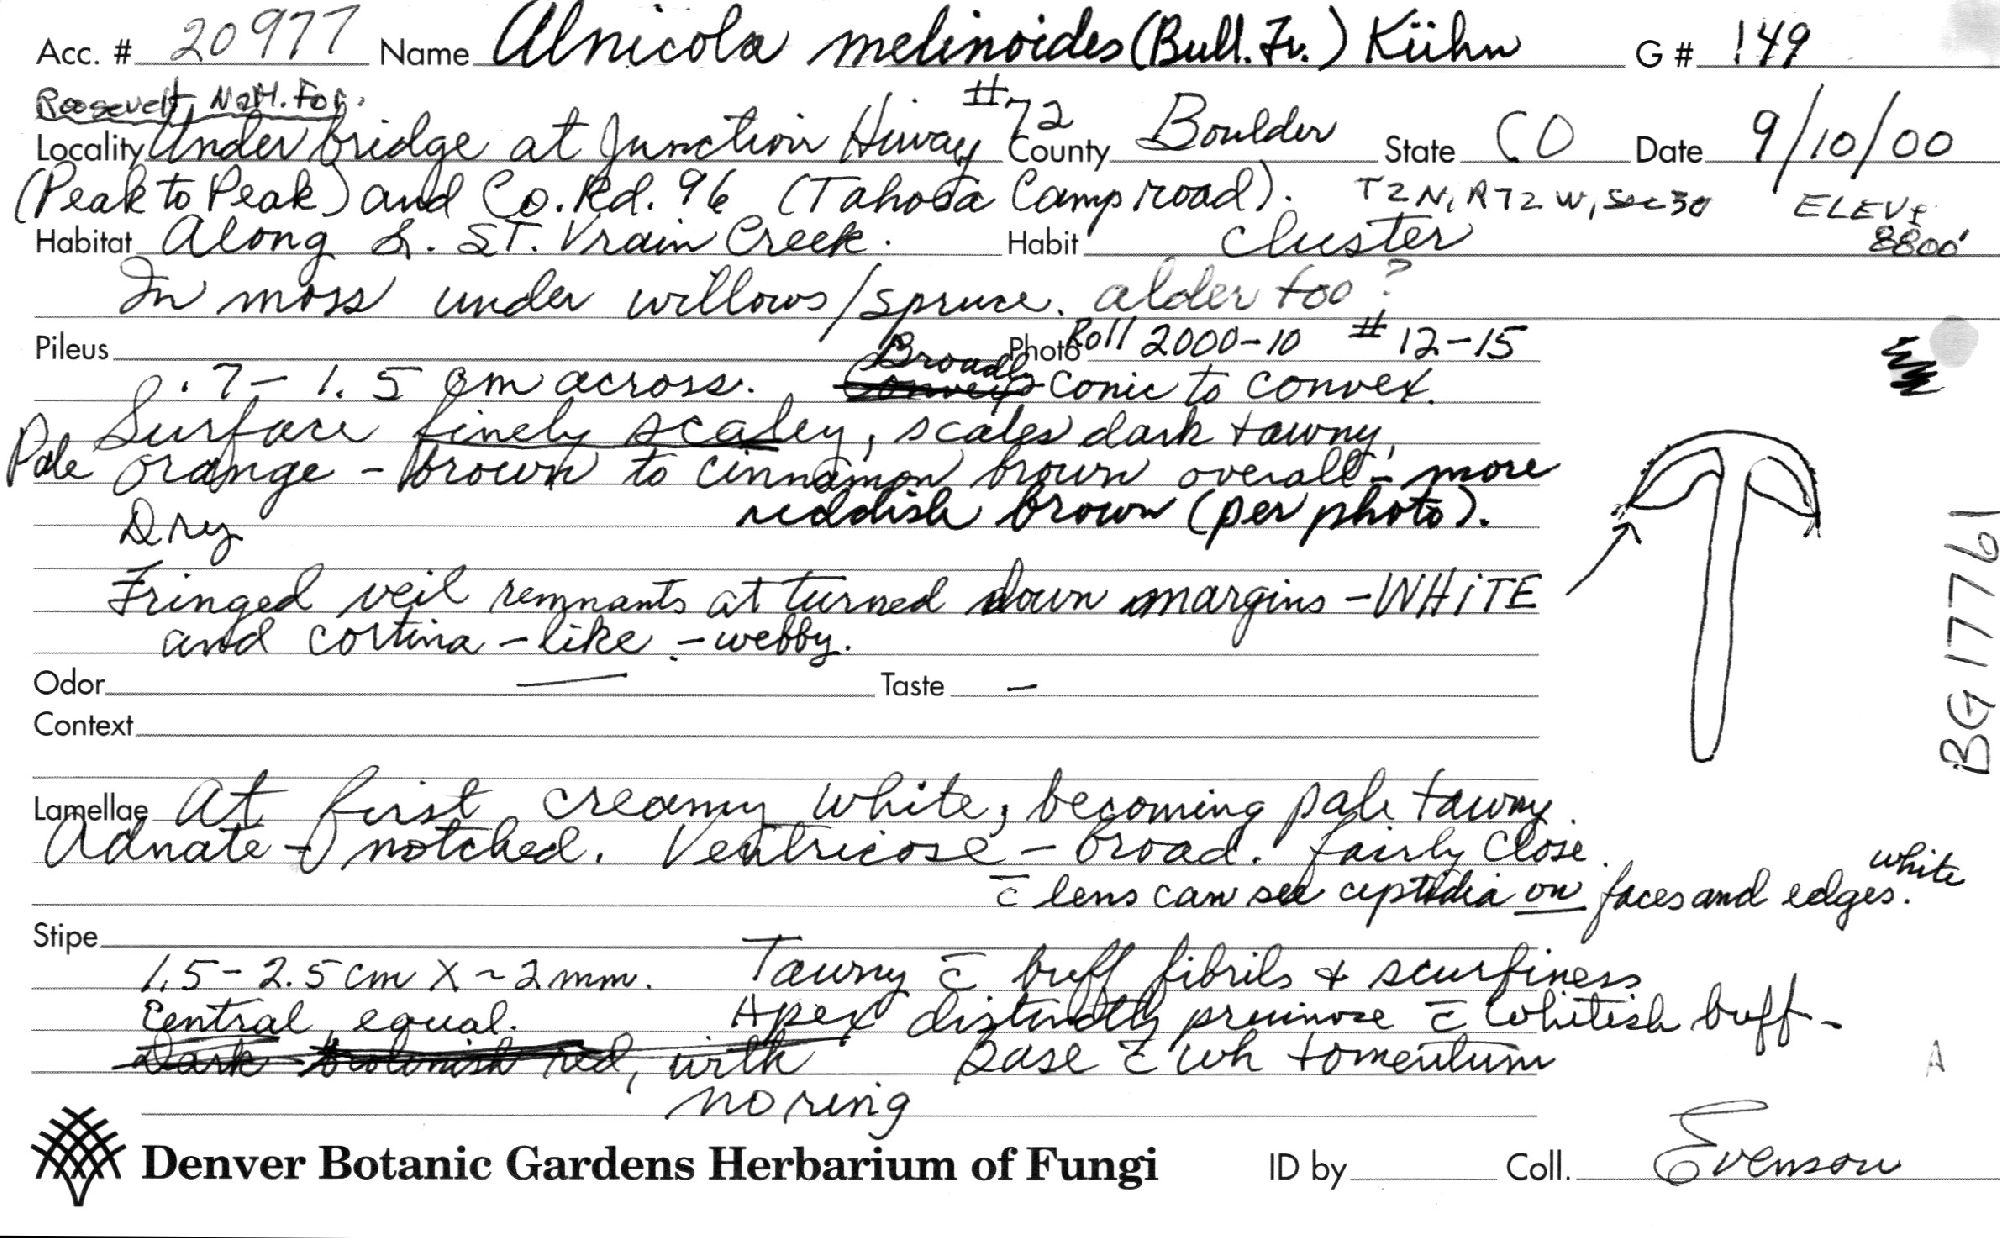 Acc. # 20977 Name Alnicola melinoides (Bull. Fr.) Kühn G # 149
Roosevelt Natl. For.
Locality Under bridge at Junction Hiway #72 County Boulder State CO Date 9/10/00
(Peak to Peak) and Co. Rd. 96 (Tahosa Camp road). T2N, R72W, Sec 30 ELEV
Habitat Along S. ST. Vrain Creek. Habit Cluster 8800'
In moss under willows/spruce. alder too?
Pileus Photo Roll 2000-10 # 12-15
0.7-1.5 cm across. Broadly conic to convex.
Surface finely scaley, scales dark tawny,
Pale orange-brown to cinnamon brown overall - more
reddish brown (per photo).
Dry
Fringed veil remnants at turned down margins - WHITE
and cortina-like - webby.
Odor — Taste —
Context
BG 17761
Lamellae At first creamy white, becoming pale tawny.
Adnate - notched. Ventricose - broad. fairly close.
c̄ lens can see cystidia on faces and edges. white
Stipe
1.5-2.5 cm X ~2 mm. Tawny c̄ buff fibrils + scurfiness
Central, equal. Apex distinctly pruinose c̄ whitish buff-
Dark red, with Base c̄ wh tomentum
no ring
A
Denver Botanic Gardens Herbarium of Fungi ID by Coll. Evenson